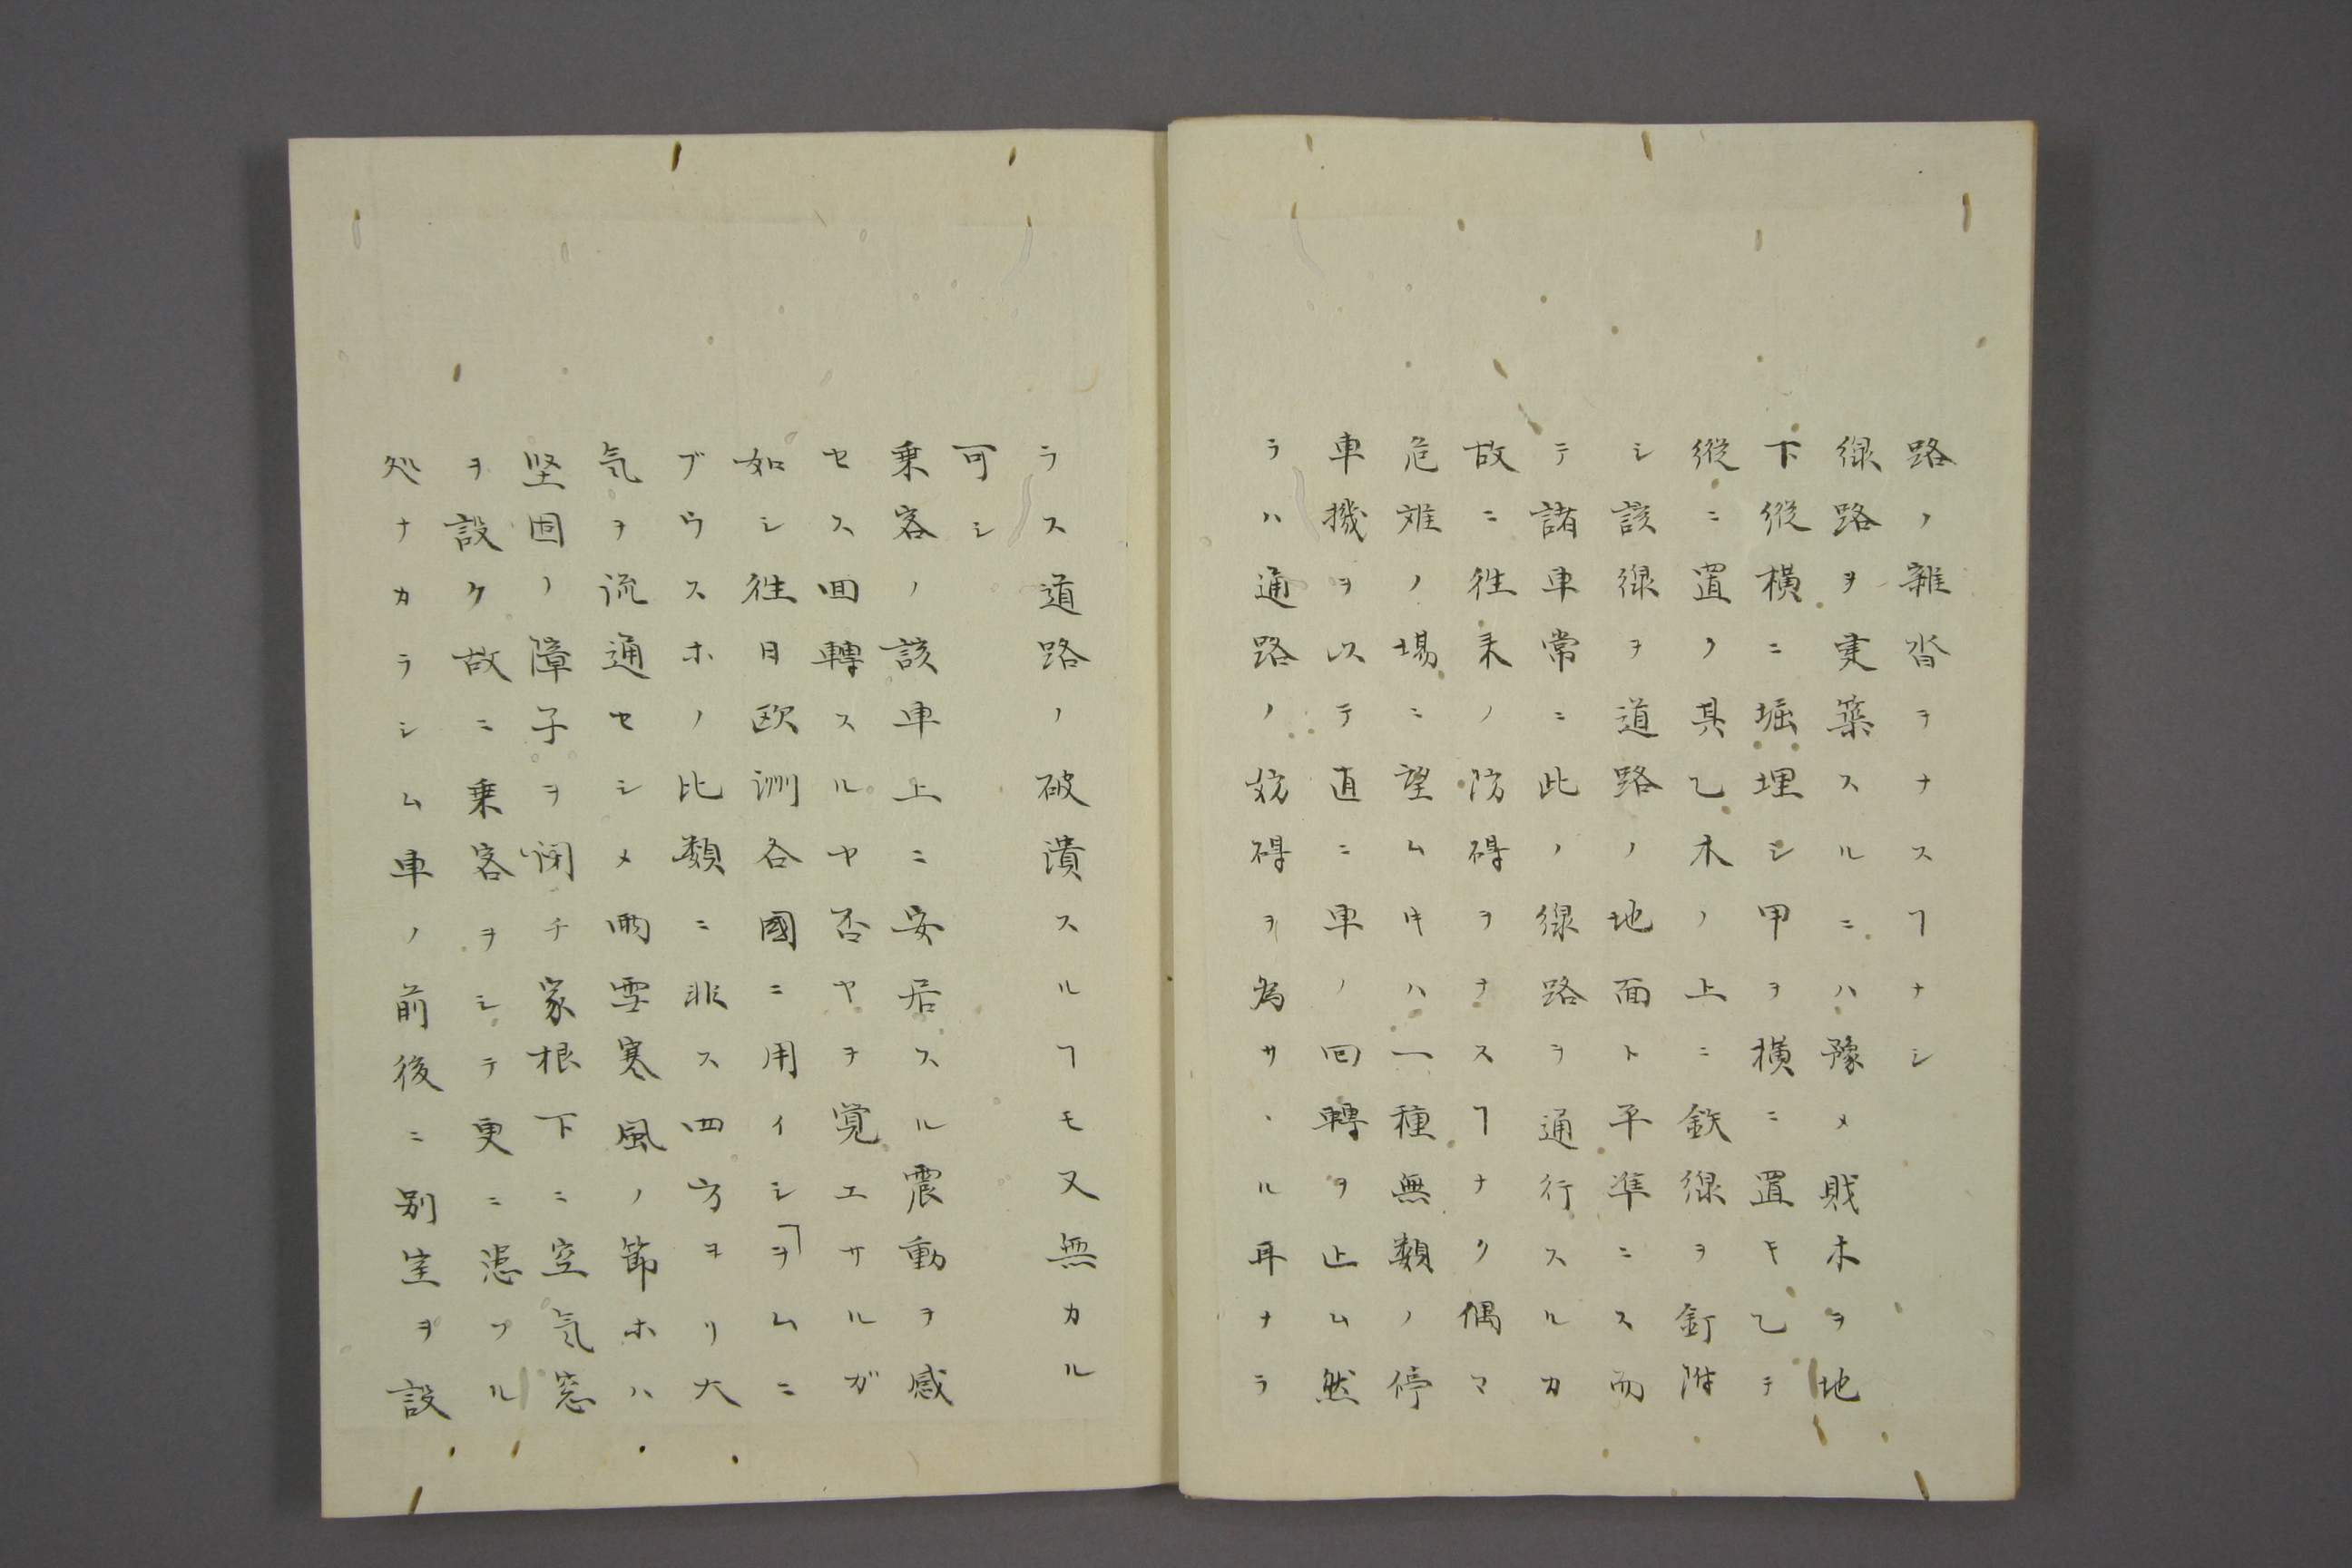 路ノ雜沓ヲナスヿナシ
線路ヲ建築スルニハ豫メ賎木ヲ地
下縦横ニ堀埋シ甲ヲ横ニ置キ乙テ
縦ニ置ク其乙木ノ上ニ鉄線ヲ釘附
シ該線ヲ道路ノ地面ト平準ニス而
テ諸車常ニ此ノ線路ヲ通行スルカ
故ニ徃来ノ防碍ヲナスヿナク偶マ
危難ノ場ニ望ムキハ一種無類ノ停
車機ヲ以テ直ニ車ノ回轉ヲ止ム然
ラハ通路ノ妨碍ヲ為サヽル耳ナラ
ラス道路ノ破潰スルヿモ又無カル
可シ
乗客ノ該車上ニ安居スル震動ヲ感
セス回轉スルヤ否ヤヲ覚エサルガ
如シ徃日欧洲各國ニ用イシヿヲムニ
ブウスホノ比類ニ非ス四方ヨリ大
気ヲ流通セシメ雨雪寒風ノ節ホハ
堅固ノ障子ヲ閉チ家根下ニ空気窓
ヲ設ケ故ニ乗客ヲシテ更ニ患フル
処ナカラシム車ノ前後ニ別室ヲ設